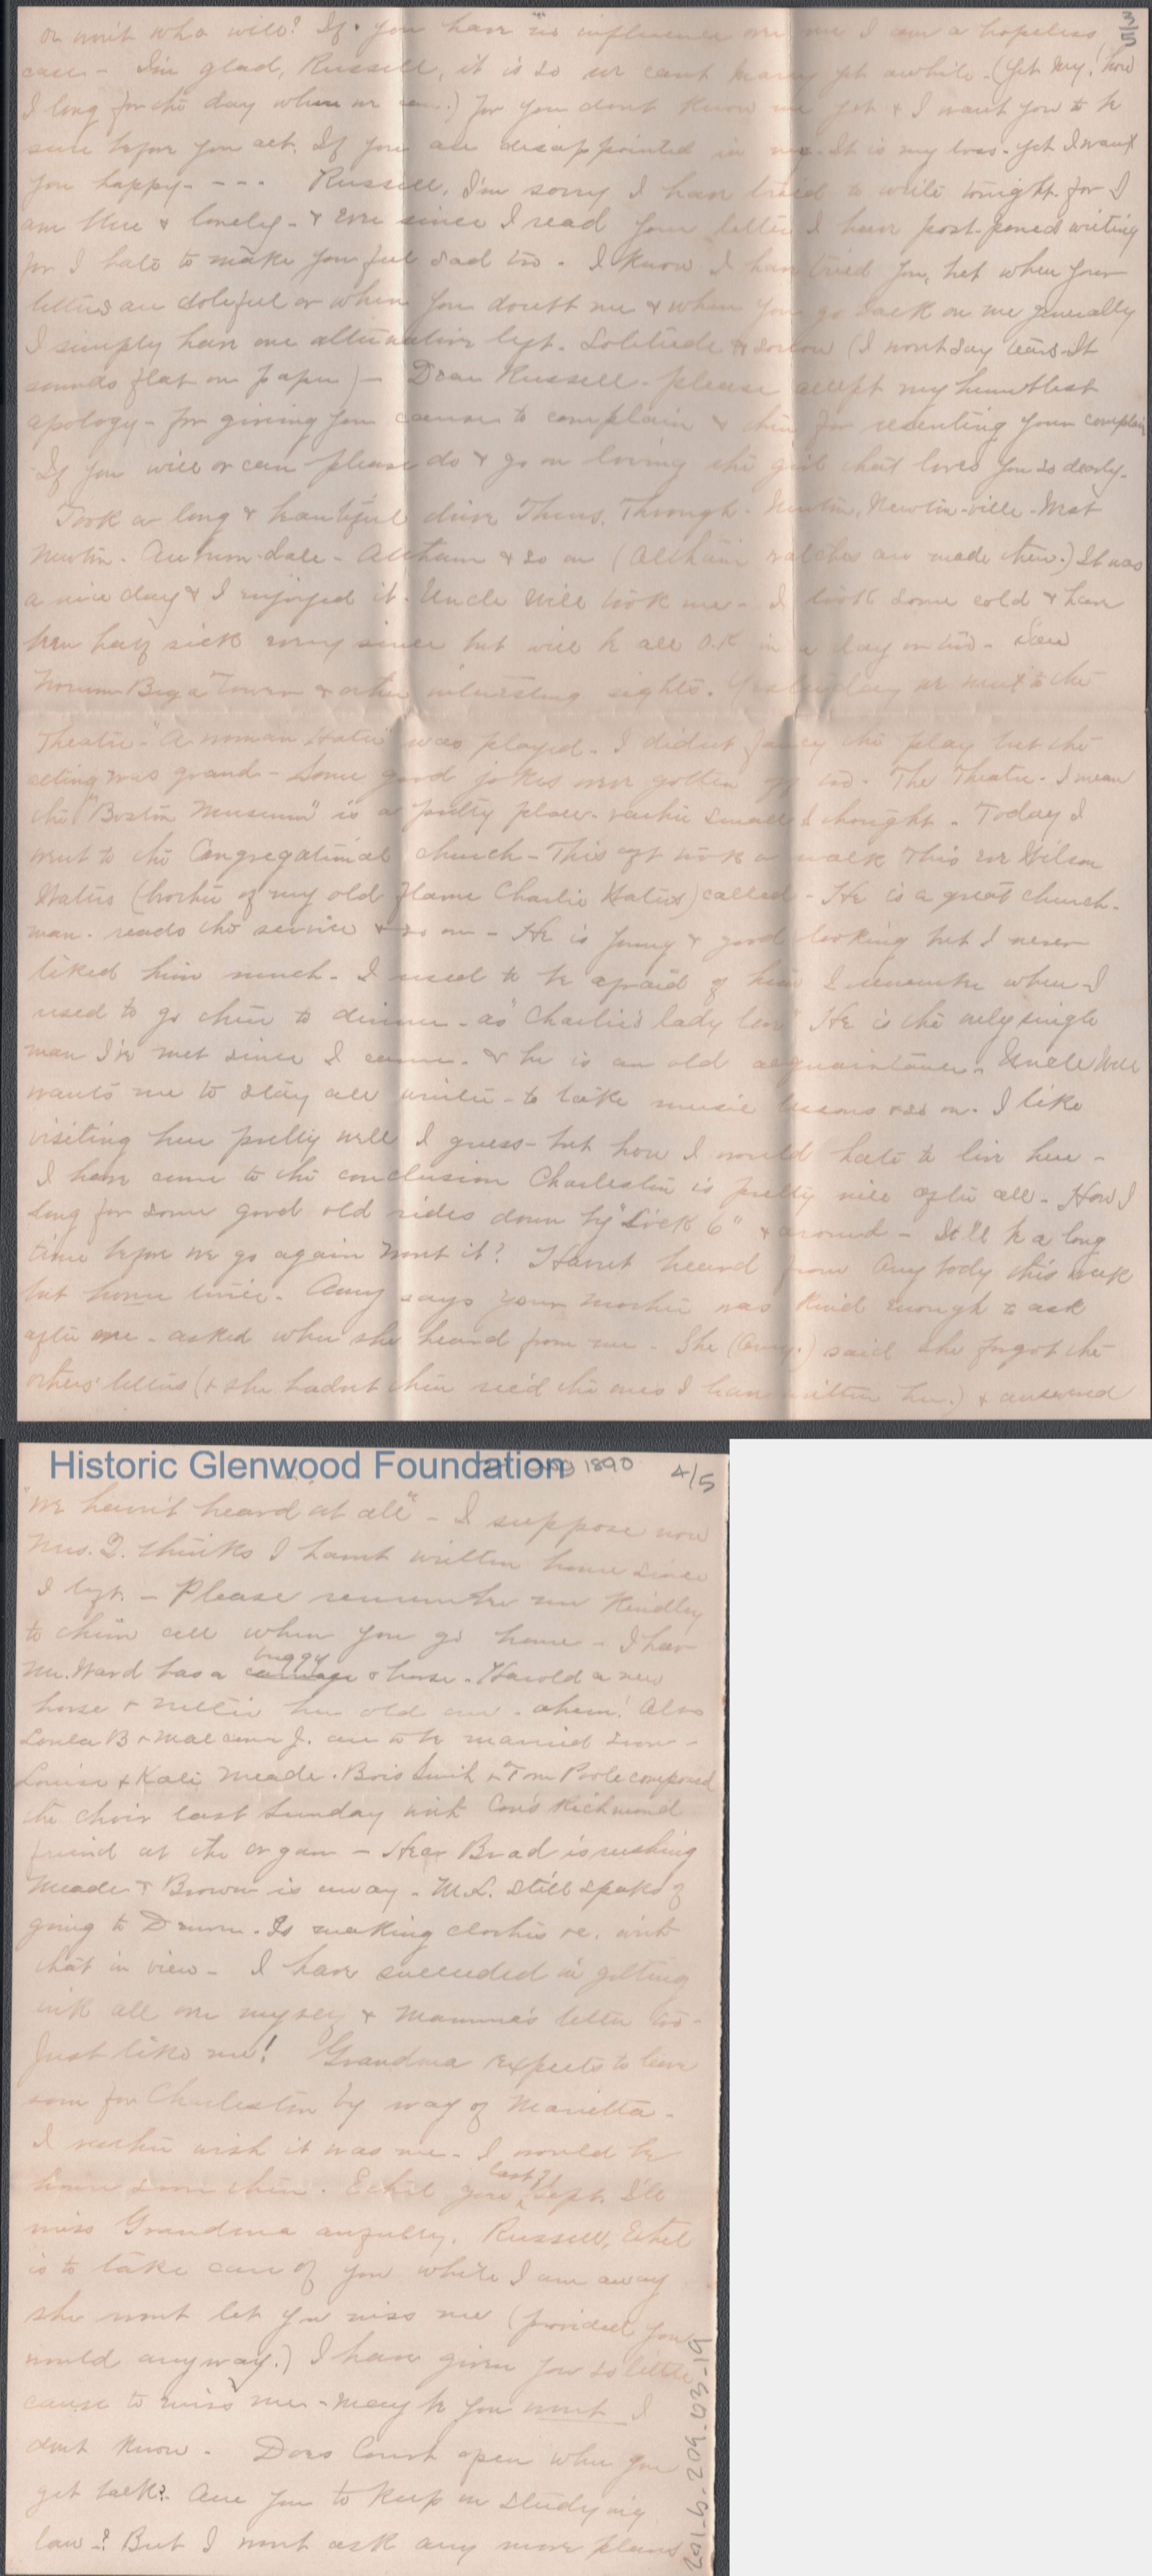 or won't who will? If you have no influence over me I am a hopeless
3/5
case - I'm glad, Russell, it is so we cant marry yet awhile - (Yet my! how
I long for the day when we can.) for you dont know me yet & I want you to be
sure before you act. If you are disappointed in me - It is my loss - yet I want
you happy - - - - Russell, I'm sorry I have tried to write tonight for I
am blue & lonely - & ever since I read your letter I have post-poned writing
for I hate to make you feel sad too - I know I have tried you, but when your
letters are doleful or when you doubt me & when you go back on me generally
I simply have one alternative left - Solitude & sorrow (I wont say tears - It
sounds flat on paper) - Dear Russell - please accept my humblest
apology - for giving you cause to complain & then for resenting your complain
- If you will or can please do & go on loving the girl that loves you so dearly -
Took a long & beautiful drive Thurs. Through - Newton, Newton-ville - West
Newton - Auburn-dale - Altham & so on (Altham watches are made there.) It was
a nice day & I enjoyed it. Uncle Will took me - I took some cold & have
been half sick every since but will be all O.K in a day or two - Saw
Norum Bega Tower & other interesting sights. Yesterday we went to the
Theatre - "A woman Hater" was played - I didnt fancy the play but the
acting was grand - Some good jokes were gotten off too - The Theatre - I mean
the "Boston Museum" is a pretty place - rather small I thought - Today I
went to the Congregational church - This aft took a walk This eve Wilson
Waters (brother of my old flame Charlie Waters) called - He is a great church-
man - reads the service & so on - He is funny & good looking but I never
liked him much - I used to be afraid of him I remember when I
used to go there to dinner - as "Charlie's lady love" He is the only single
man I've met since I came - & he is an old acquaintance - Uncle Will
wants me to stay all winter - to take music lessons & so on. I like
visiting here pretty well I guess - but how I would hate to live here -
I have come to the conclusion Charleston is pretty nice after all - How I
long for some good old rides down by "Lock 6" & around - It'll be a long
time before we go again wont it? Havnt heard from any body this week
but home twice - Amy says your mother was kind enough to ask
after me - asked when she heard from me - She (Amy.) said she forgot the
others' letters (& she hadnt then rec'd the ones I have written her.) & answered
Historic Glenwood Foundation
1890
4/5
"We havn't heard at all" - I suppose now
Mrs. Q. thinks I havnt written home since
I left. - Please remember me kindly
to them all when you go home - I hear
buggy
Mr. Ward has a carriage & horse - Harold a new
horse & Nettie her old one - ahem! Also
Loula B & Malcomn J. are to be married soon -
Louise & Kate Meade - Bois Smith & Tom Poole composed
the choir last Sunday with Con's Richmond
friend at the organ - Hear Brad is rushing
Meade & Brown is away - M.L. still speaks of
going to Denver. Is making clothes &c. with
that in view - I have succeeded in getting
ink all over myself & Mamma's letter too -
Just like me! Grandma expects to leave
soon for Charleston by way of Marietta -
I rather wish it was me - I would be
home soon then. Ethel goes
last of
Sept. I'll
miss Grandma awfully. Russell, Ethel
is to take care of you while I am away
she wont let you miss me (provided you
would anyway.) I have given you so little
cause to miss me - may be you wont I
dont know - Does Court open when you
get back? Are you to keep on studying
law -? But I wont ask any more plans